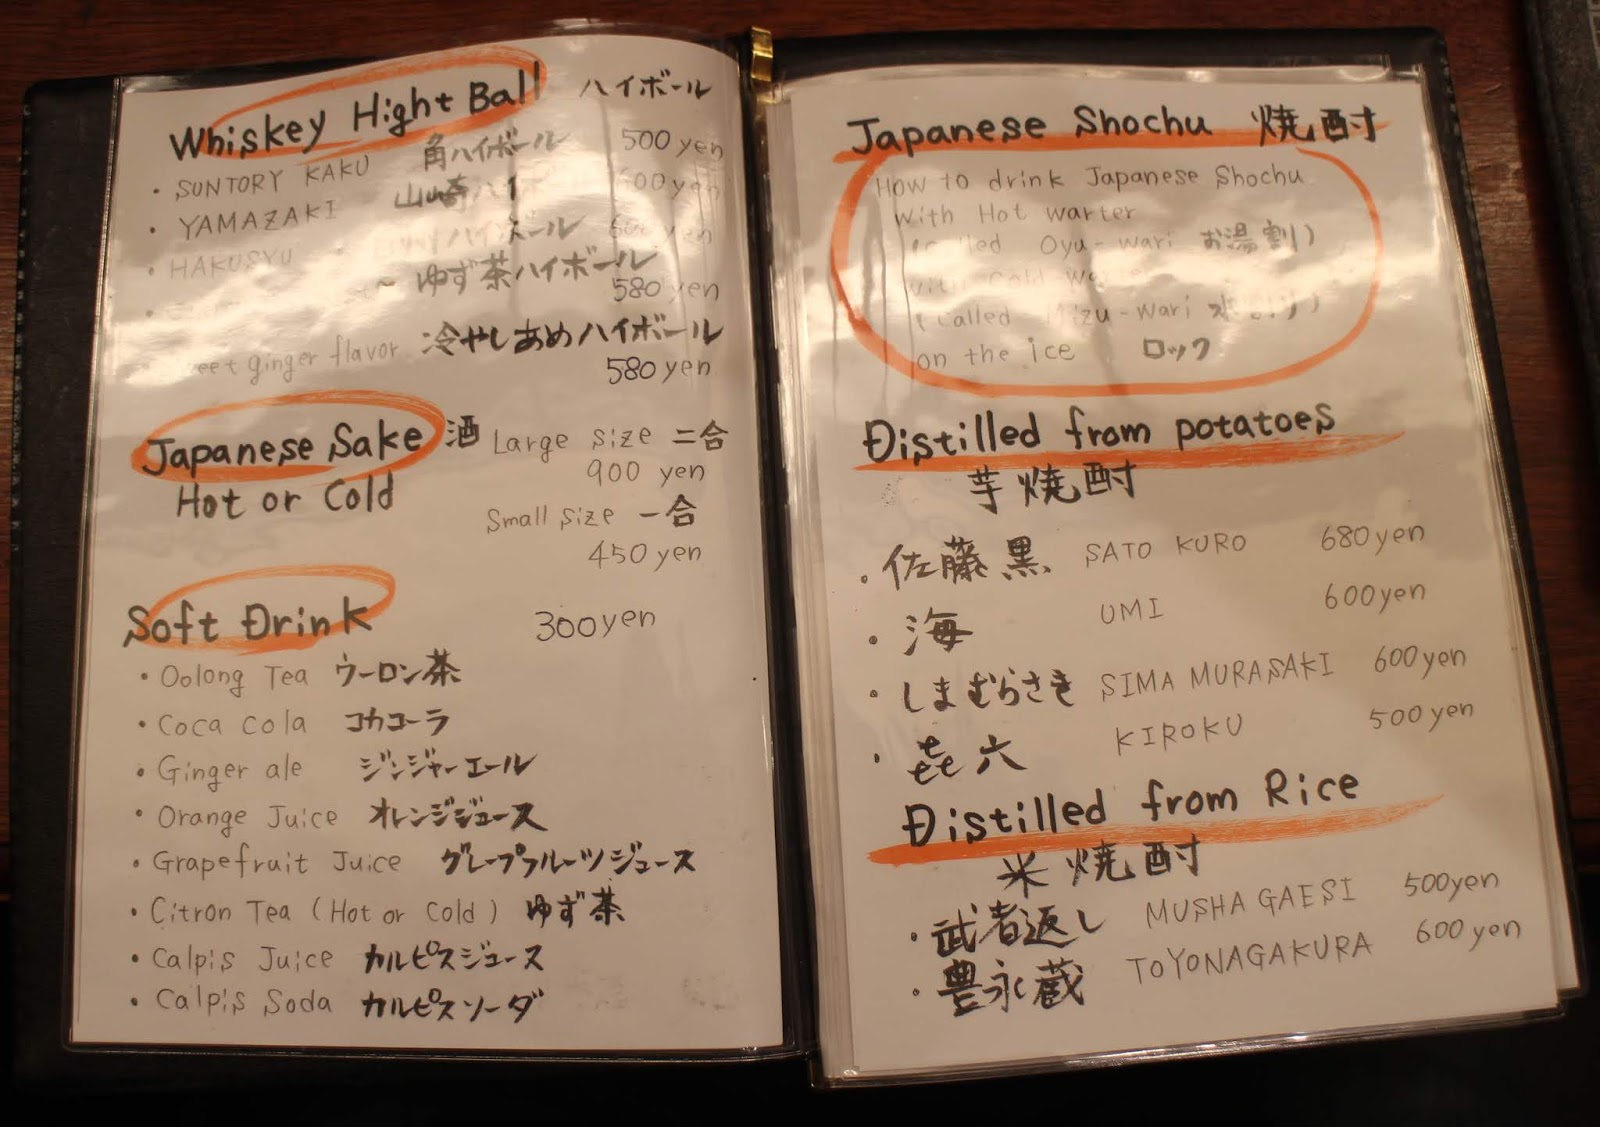 Whiskey Hight Ball ハイボール
・SUNTORY KAKU 角ハイボール 500 yen
・YAMAZAKI 山崎ハイボ 600 yen
・HAKUSYU ハイボール 600 yen
ゆず茶ハイボール
580 yen
ginger flavor 冷やしあめハイボール
580 yen
Japanese Sake 酒 Large size 二合
900 yen
Hot or Cold
Small size 一合
450 yen
Soft Drink 300 yen
・Oolong Tea ウーロン茶
・Coca cola コカコーラ
・Ginger ale ジンジャーエール
・Orange Juice オレンジジュース
・Grapefruit Juice グレープフルーツジュース
・Citron Tea (Hot or Cold) ゆず茶
・Calpis Juice カルピスジュース
・Calpis Soda カルピスソーダ
Japanese Shochu 焼酎
How to drink Japanese Shochu
with Hot warter
(called Oyu-wari お湯割)
with Cold
(called Mizu-wari 水割り)
on the ice ロック
Distilled from potatoes
芋焼酎
・佐藤黒 SATO KURO 680 yen
・海 UMI 600 yen
・しまむらさき SIMA MURASAKI 600 yen
・㐂六 KIROKU 500 yen
Distilled from Rice
米焼酎
・武者返し MUSHA GAESI 500 yen
・豊永蔵 TOYONAGAKURA 600 yen